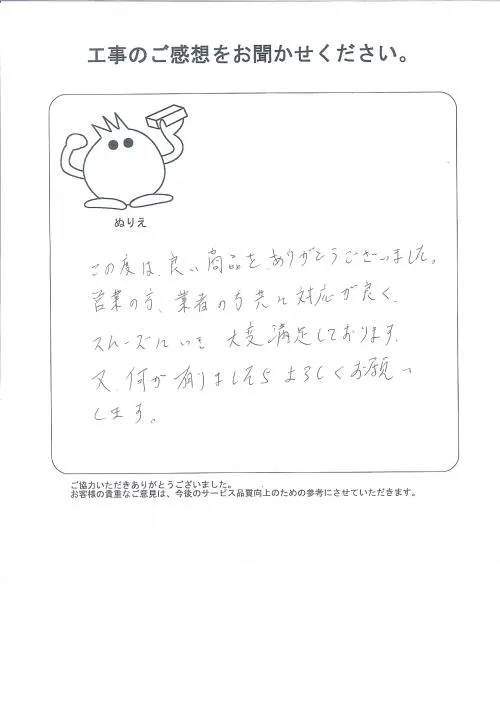 工事のご感想をお聞かせください。
ぬりえ
この度は、良い商品を、ありがとうございました。
営業の方、業者の方共に対応が良く、
スムーズにいき 大変満足しております。
又、何か有りましたらよろしくお願い
します。
ご協力いただきありがとうございました。
お客様の貴重なご意見は、今後のサービス品質向上のための参考にさせていただきます。